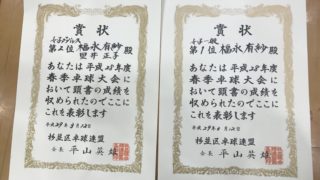 賞状
女子ダブルス
第2位 福永有紗 殿
田井正子
あなたは平成28年度
春季卓球大会に
おいて頭書の成績を
収められたのでここに
これを表彰します
平成29年3月12日
杉並区卓球連盟
会長 平山英雄
賞状
女子一般
第1位 福永有紗 殿
あなたは平成28年度
春季卓球大会に
おいて頭書の成績を
収められたのでここに
これを表彰します
平成29年3月12日
杉並区卓球連盟
会長 平山英雄